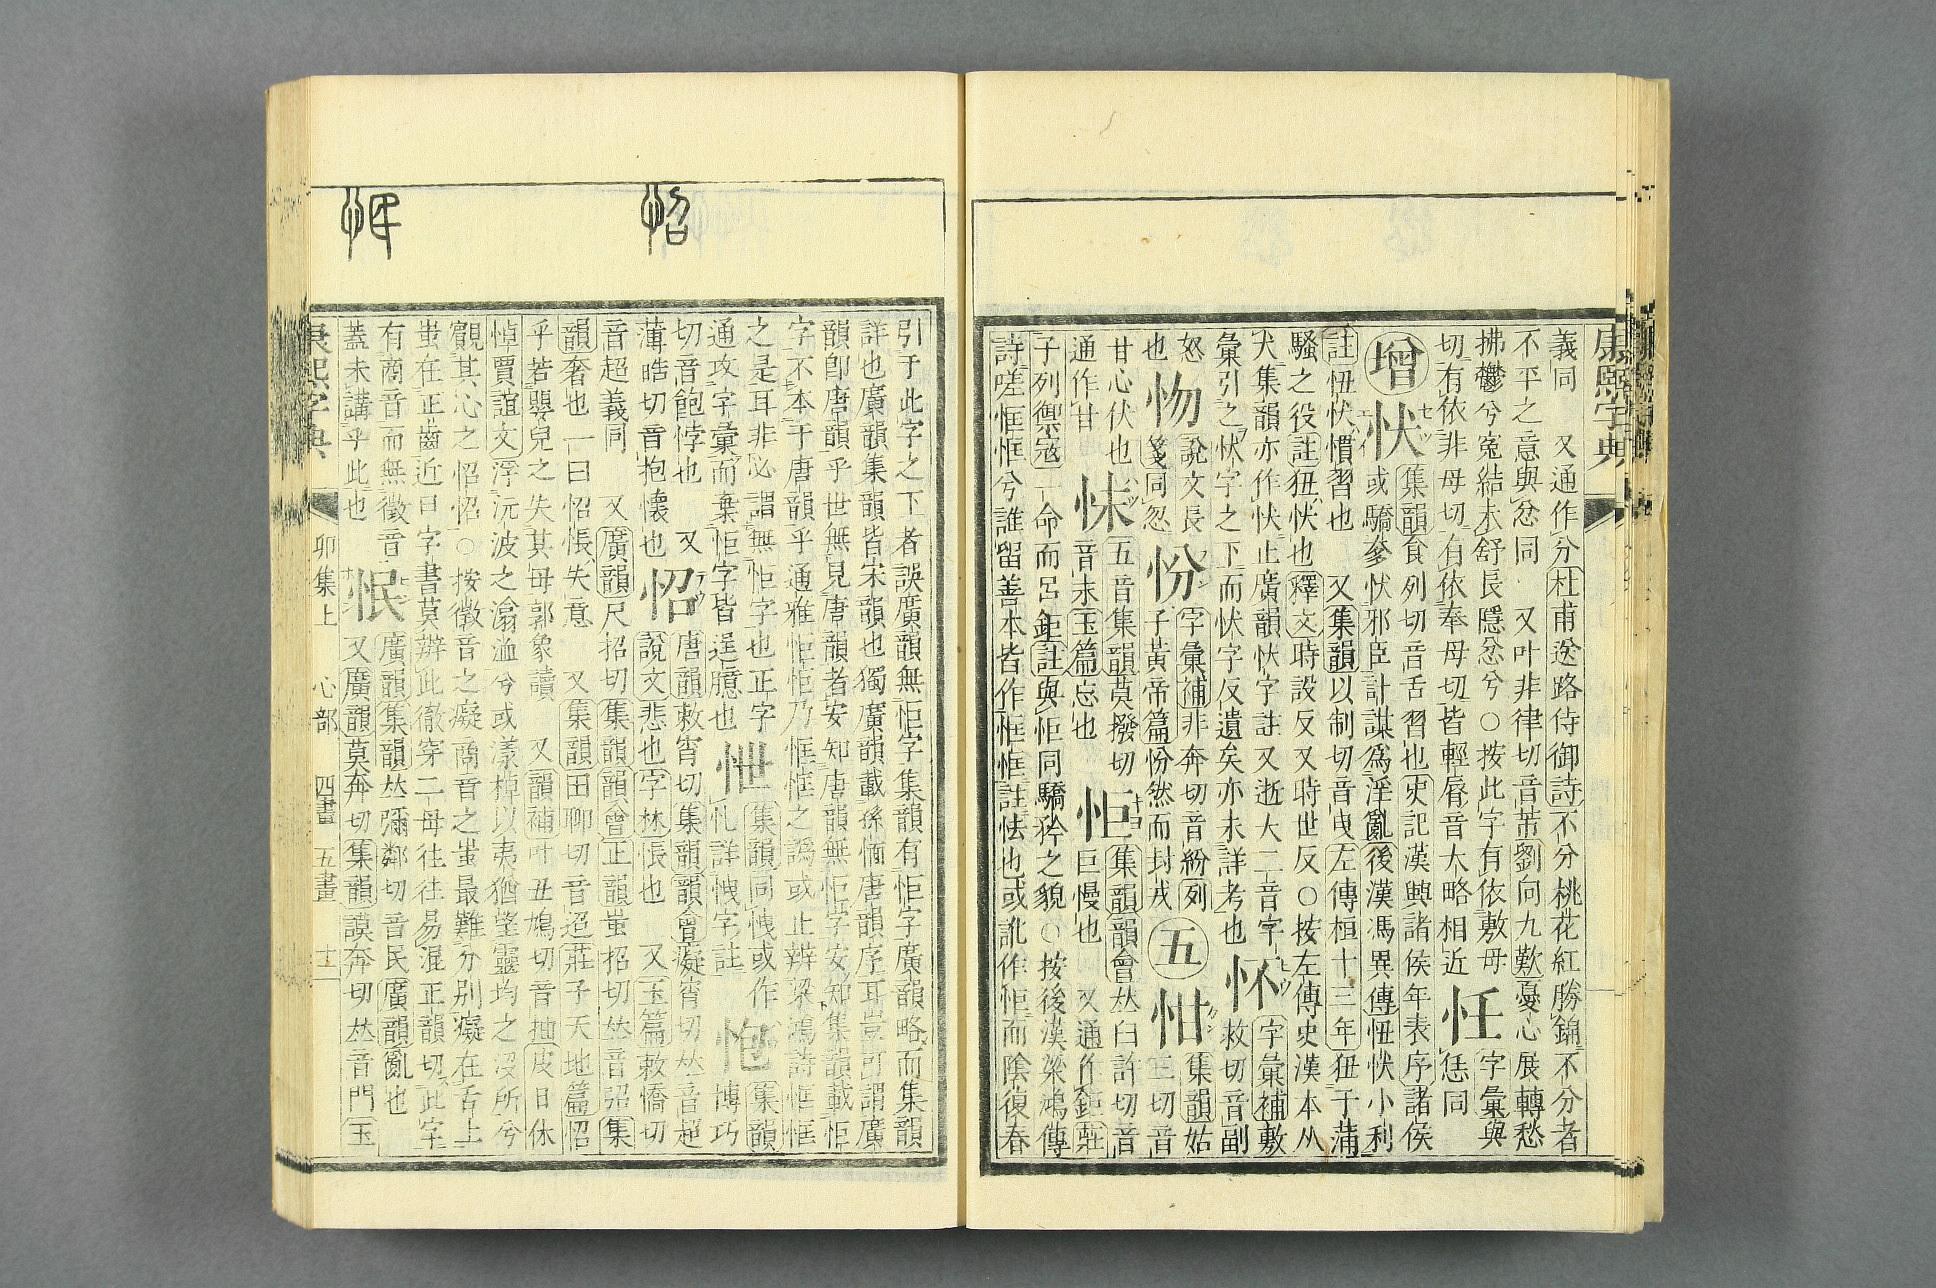 康熙字典
義同 又通作分杜甫送路侍御詩不分桃花紅勝錦不分者
不平之意與忿同 又叶非律切音芾劉向九歎憂心展轉愁
拂鬱兮寃結未舒長隱忿兮○按此字有依敷母 字彙與
切有依非母切有依奉母切皆輕脣音大略相近 恁同
增 忕 集韻食列切音舌習也史記漢興諸侯年表序諸侯
或驕奓忕邪臣計謀爲淫亂後漢馮異傳忸忕小利
註忸忕慣習也 又集韻以制切音曳左傳桓十三年狃于蒲
騷之役註狃忕也釋文時設反又時世反○按左傳史漢本从
犬集韻亦作忕止廣韻忕字註又逝大二音字 字彙補敷
彙引之忕字之下而忕字反遺矣亦未詳考也 怀 救切音副
怒 說文長 字彙補非奔切音紛列 集韻姑
也 㧾 箋同忽 㤋 子黃帝篇㤋然而封戎 五 㤌 三切音
甘心伏也 五音集韻莫撥切 集韻韻會𠀤臼許切音
通作甘 㤕 音末玉篇忘也 怇 巨慢也 又通作鉅莊
子列禦寇一命而呂鉅註與怇同驕矜之貌○按後漢梁鴻傳
詩嗟恇恇兮誰留善本皆作恇恇註怯也或訛作怇而陰復春
怊
怋
引于此字之下者誤廣韻無怇字集韻有怇字廣韻略而集韻
詳也廣韻集韻皆宋韻也獨廣韻載孫愐唐韻序耳豈可謂廣
韻卽唐韻乎世無見唐韻者安知唐韻無怇字安知集韻載怇
字不本于唐韻乎通雅怇怇乃恇恇之譌或止辨梁鴻詩恇恇
之是耳非必謂無怇字也正字 集韻同愧或作 集韻
通攻字彙而棄怇字皆逞臆也 怈 詳愧字註 怉 博巧
切音飽悖也 又 唐韻敕宵切集韻韻會癡宵切𠀤音超
薄皓切音抱懷也 怊 說文悲也字林悵也 又玉篇敕憍切
音超義同 又廣韻尺招切集韻韻會正韻蚩招切𠀤音弨集
韻奢也一曰怊悵失意 又集韻田聊切音迢莊子天地篇怊
乎若嬰兒之失其母郭象讀 又韻補叶丑鳩切音抽皮日休
悼賈誼文浮沅波之滃溢兮或漾棹以夷猶望靈均之沒所兮
覿其心之怊怊○按徵音之癡商音之蚩最難分別癡在舌上
蚩在正齒近日字書莫辨此徹穿二母往往易混正韻切此字
有商音而無徵音 廣韻集韻𠀤彌鄰切音民廣韻亂也
蓋未講乎此也 怋 又廣韻莫奔切集韻謨奔切𠀤音門玉
康熙字典 卯集上 心部 四畫 五畫 十一